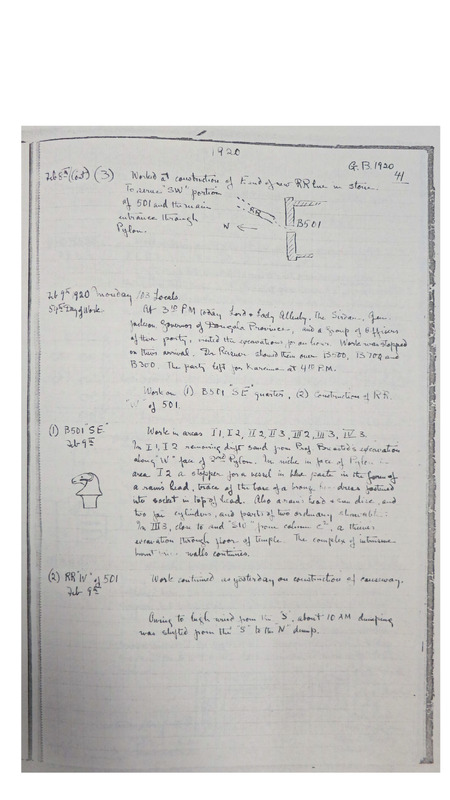 1920
G.B. 1920
41
Feb 5th (Cont) (3) Worked at construction of E. end of new RR line in stone.
To serve "SW" portion
of 501 and the main
entrance through
Pylon.
RR
N
B501
Feb 9th 1920 Monday 103 Locals.
Day of Work
At 3 PM today Lord & Lady Allenby, the Sirdar, Gen.
Jackson Governor of Dongola Province, and a group of Officers
of their party, visited the excavations for an hour. Work was stopped
on their arrival. Dr. Reisner showed them over B500, B702 and
B300. The party left for Kareima at 4 P.M.
Work on (1) B501 "SE" quarter, (2) Construction of RR.
"W" of 501.
(1) B501 "SE"
Feb 9th
Work in areas I1, I2, II2, II3, III2, III3, IV3.
In I1, I2 removing drift sand from Prof Breasted's excavation
along "W" face of 2nd Pylon. In niche in face of Pylon in
area I2 a stopper for a vessel in blue paste in the form of
a ram's head, trace of the base of a bronze dress fastened
into socket in top of head. Also a ram's head & sun disc, and
two cylinders, and parts of two ordinary
In III3, close to and "S10" from column C2, a thieves
excavation through floor of temple. The complex of intrusive
burnt walls continues.
(2) RR "W" of 501
Feb 9th
Work continued as yesterday on construction of causeway.
Owing to high wind from the "S", about 10 AM dumping
was shifted from the "S" to the "N" dump.